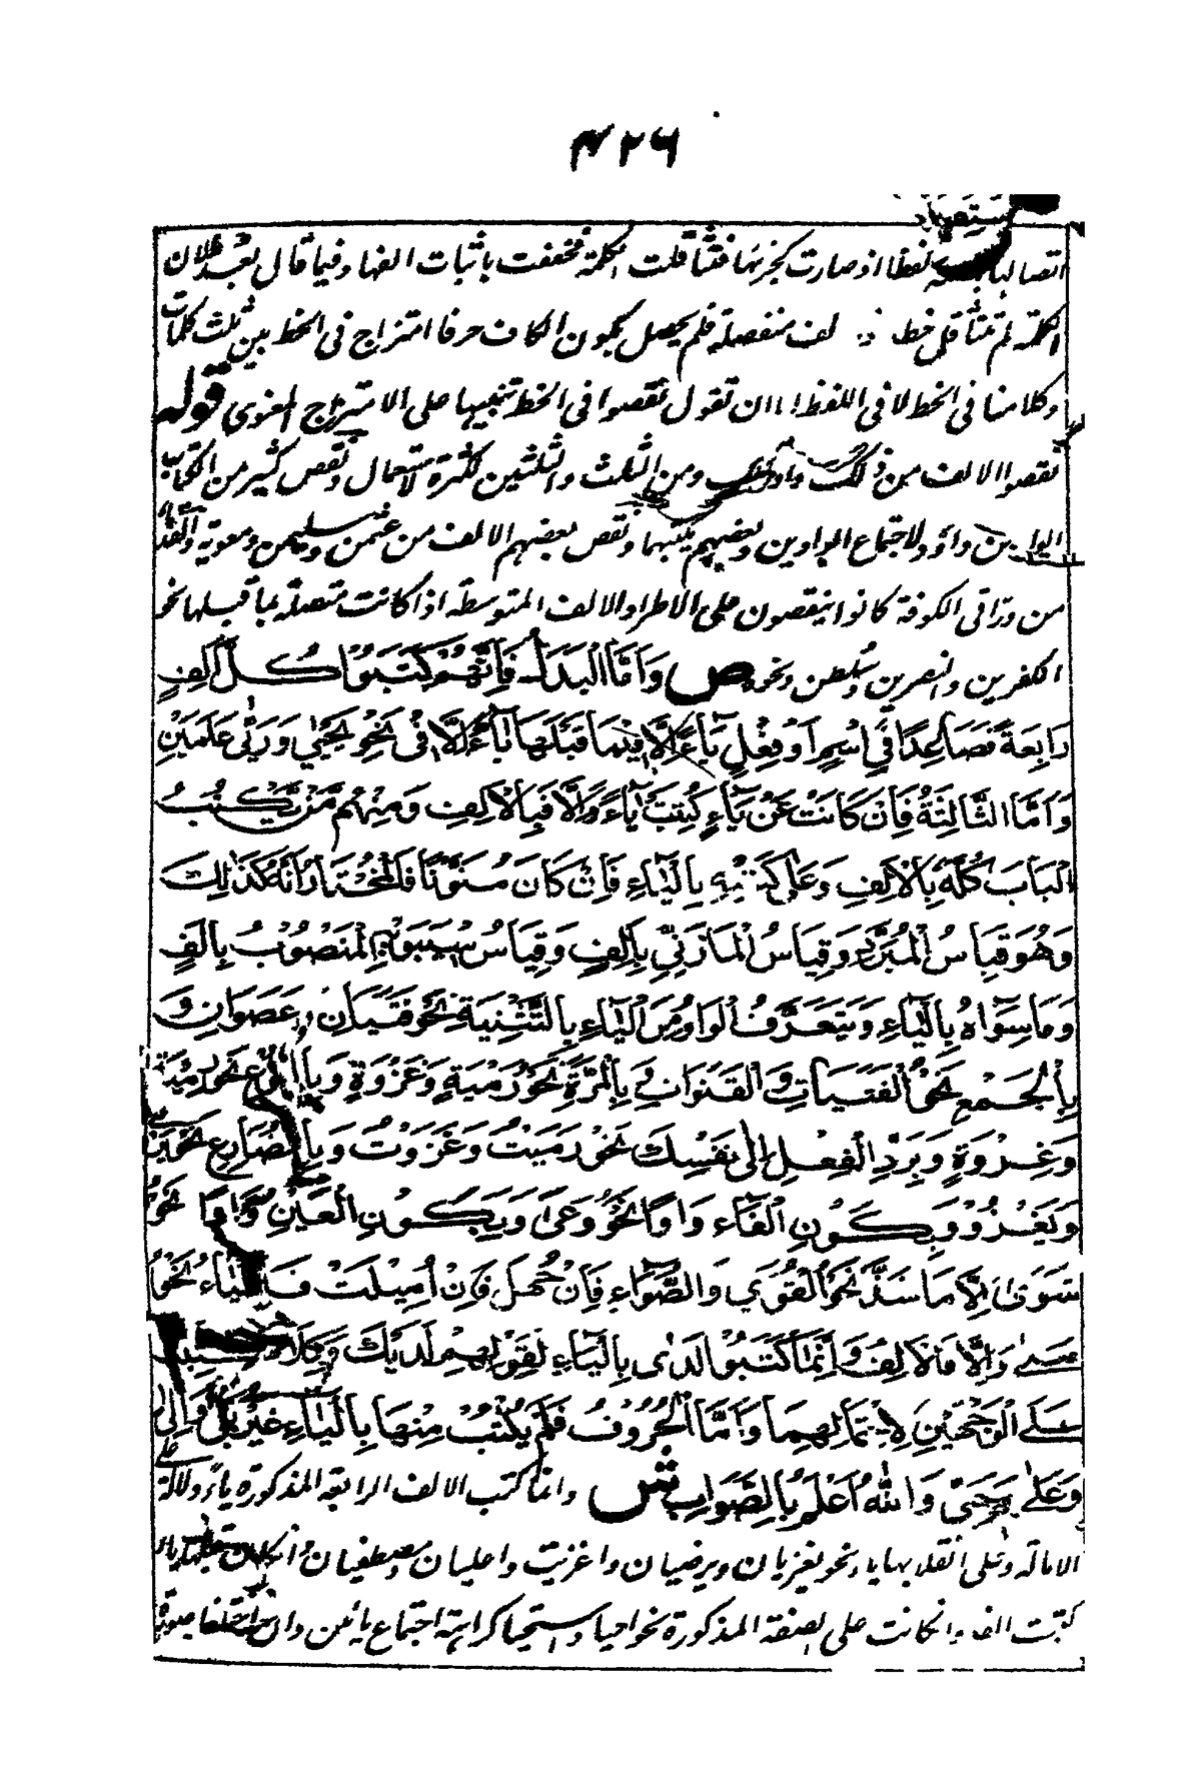 ۴۲۶
اتصالها لفظا اذ صارت كجزئها فتثاقلت الكلمة فخففت باثبات الفها وفيما قال بعد ظلان
الكلمة لم تتثاقل خطا الف منفصلة فلم يحصل بكون الكاف حرفا امتزاج فى الخط بين ثلث كلمات
وكلامنا فى الخط لا فى اللفظ ان تقول نقصوا فى الخط تنبيها على الامتزاج المعنوى قوله
نقصوا الالف من ذلك ومن الثلث والثلثين لكثرة الاستعمال ونقص كثير من الكتاب
الواو من داؤد لاجتماع الواوين وبعضهم يكتبها ونقص بعضهم الالف من عثمن وسليمن ومعوية والقدماء
من وراقى الكوفة كانوا ينقصون على الاطراد الالف المتوسطة اذا كانت متصلة بما قبلها نحو
الكفرين والنصرين وسلطن ونحوه ص وَاَمَّا الْبَدَلُ فَاِنَّهُمْ كَتَبُوْا كُلَّ اَلِفٍ
رَابِعَةً فَصَاعِدًا فِي اسْمٍ اَوْ فِعْلٍ يَاءً اِلَّا فِيْمَا قَبْلَهَا يَاءٌ اِلَّا فِى نَحْوِ يَحْيٰى وَرَيّٰى عَلَمَيْنِ
وَاَمَّا الثَّالِثَةُ فَاِنْ كَانَتْ عَنْ يَاءٍ كُتِبَتْ يَاءً وَاِلَّا فَبِالْاَلِفِ وَمِنْهُمْ مَنْ يَكْتُبُ
الْبَابَ كُلَّهُ بِالْاَلِفِ وَعَلٰى كَتْبِهٖ بِالْيَاءِ فَاِنْ كَانَ مُنَوَّنًا فَالْمُخْتَارُ اَنَّهُ كَذٰلِكَ
وَهُوَ قِيَاسُ الْمُبَرَّدِ وَقِيَاسُ الْمَازِنِيِّ بِاَلِفٍ وَقِيَاسُ سِيْبَوَيْهِ الْمَنْصُوْبُ بِاَلِفٍ
وَمَا سِوَاهُ بِالْيَاءِ وَيُتَعَرَّفُ الْوَاوُ مِنَ الْيَاءِ بِالتَّثْنِيَةِ نَحْوُ فَتَيَانِ وَعَصَوَانِ وَ
بِالْجَمْعِ نَحْوُ الْفَتَيَاتِ وَالْقَنَوَاتِ وَبِالْمَرَّةِ نَحْوُ رَمْيَةٍ وَغَزْوَةٍ وَبِالنَّوْعِ نَحْوُ رِمْيَةٍ
وَغِزْوَةٍ وَبِرَدِّ الْفِعْلِ اِلٰى نَفْسِكَ نَحْوُ رَمَيْتُ وَغَزَوْتُ وَبِالْمُضَارِعِ نَحْوُ يَرْمِيْ
وَيَغْزُوْ وَبِكَوْنِ الْفَاءِ وَاوًا نَحْوُ وَعٰى وَبِكَوْنِ الْعَيْنِ وَاوًا نَحْوُ
شَوٰى اِلَّا مَا شَذَّ نَحْوُ الْقُوٰى وَالصُّوٰى فَاِنْ جُهِلَ فَاِنْ اُمِيْلَتْ فَالْيَاءُ نَحْوُ
مَتٰى وَاِلَّا فَالْاَلِفُ وَاِنَّمَا كَتَبُوْا لَدٰى بِالْيَاءِ لِقَوْلِهِمْ لَدَيْكَ وَكِلَا كُتِبَتْ
عَلَى الْوَجْهَيْنِ لِاحْتِمَالِهِمَا وَاَمَّا الْحُرُوْفُ فَلَمْ يُكْتَبْ مِنْهَا بِالْيَاءِ غَيْرُ بَلٰى وَاِلٰى
وَعَلٰى وَحَتّٰى وَاللّٰهُ اَعْلَمُ بِالصَّوَابِ ش وانما كتب الالف الرابعة المذكورة ياء دلالة على
الامالة وعلى انقلابها ياء نحو يغزيان ويرضيان واغزيت واعليان ومصطفيان وان كان قبلها ياء
كتبت الفا وان كانت على الصفة المذكورة نحو احيا واستحيا كراهة اجتماع يائين وان اختلفا صورة